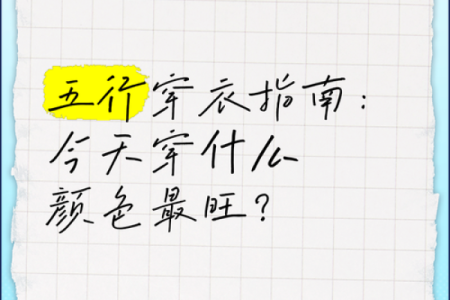 五行穿衣指南：
今天穿什么
颜色最旺？